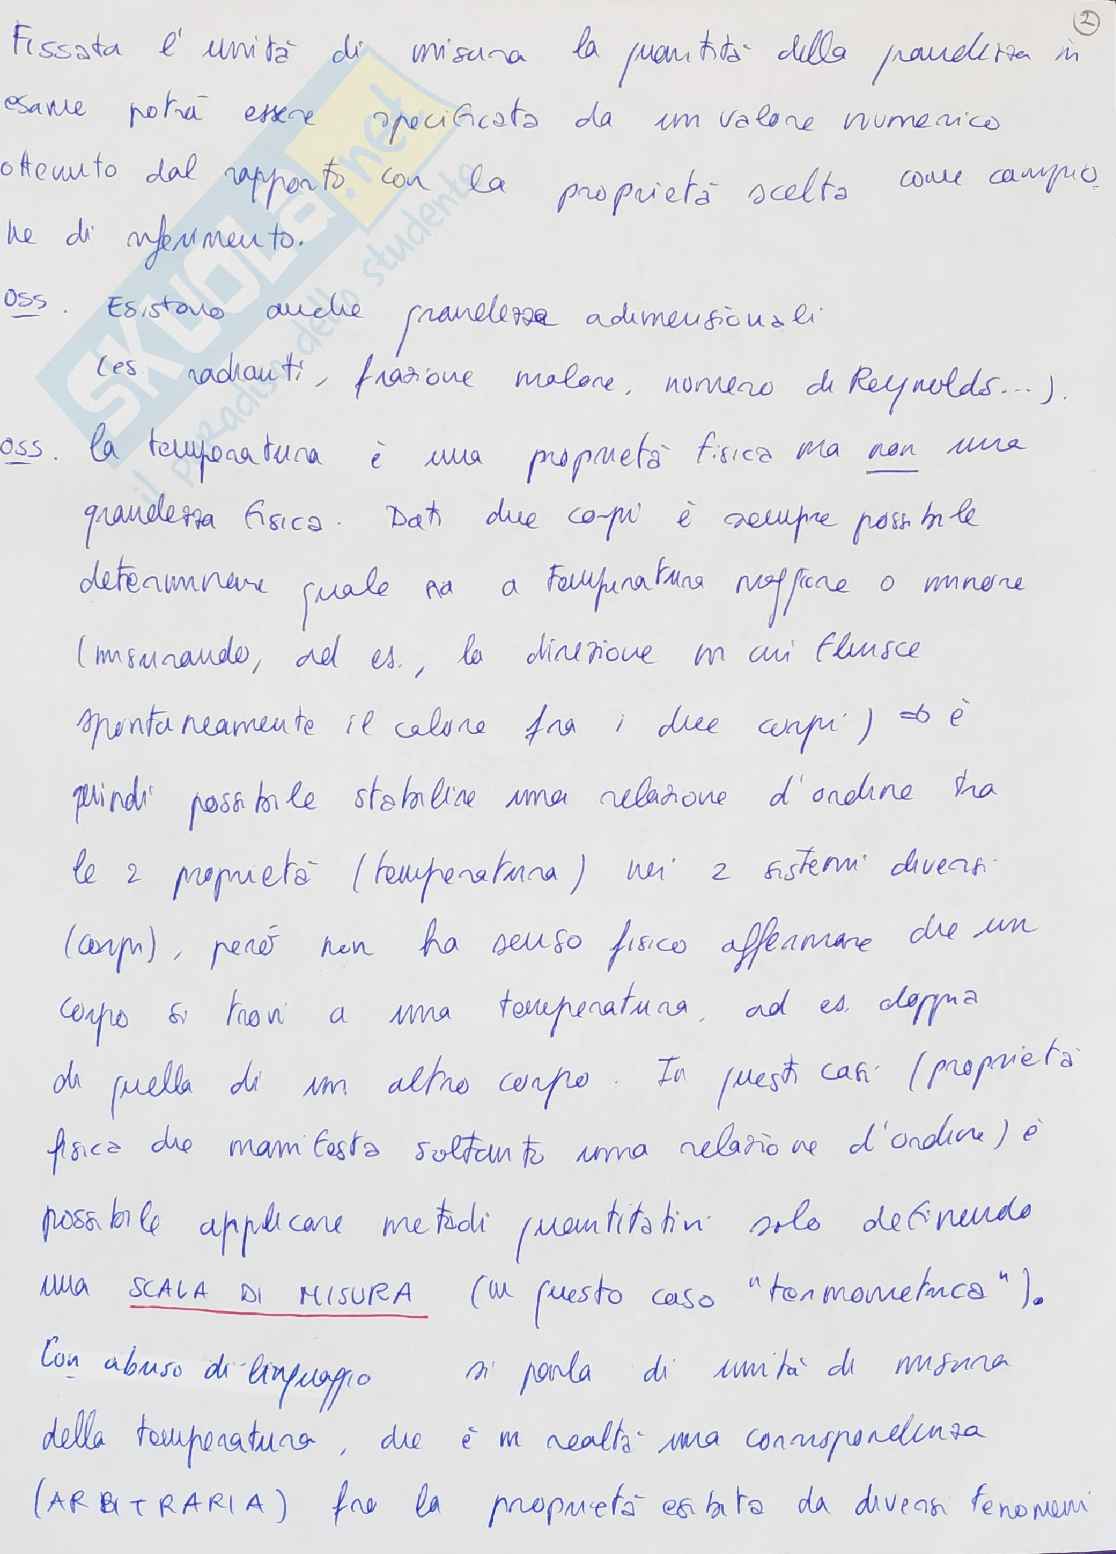 2
Fissata l'unità di misura la quantità della grandezza in
esame potrà essere specificata da un valore numerico
ottenuto dal rapporto con la proprietà scelta come campio
ne di riferimento.
oss. Esistono anche grandezze adimensionali
(es. radianti, frazione molare, numero di Reynolds...).
oss. la temperatura è una proprietà fisica ma non una
grandezza fisica. Dati due corpi è sempre possibile
determinare quale sia a temperatura maggiore o minore
(misurando, ad es., la direzione in cui fluisce
spontaneamente il calore fra i due corpi) => è
quindi possibile stabilire una relazione d'ordine tra
le 2 proprietà (temperatura) nei 2 sistemi diversi
(corpi), però non ha senso fisico affermare che un
corpo si trovi a una temperatura, ad es. doppia
di quella di un altro corpo. In questi casi (proprietà
fisica che manifesta soltanto una relazione d'ordine) è
possibile applicare metodi quantitativi solo definendo
una SCALA DI MISURA (in questo caso "termometrica").
Con abuso di linguaggio si parla di unità di misura
della temperatura, che è in realtà una corrispondenza
(ARBITRARIA) fra la proprietà esibita da diversi fenomeni
SKUOLA.net
il paradiso dello studente